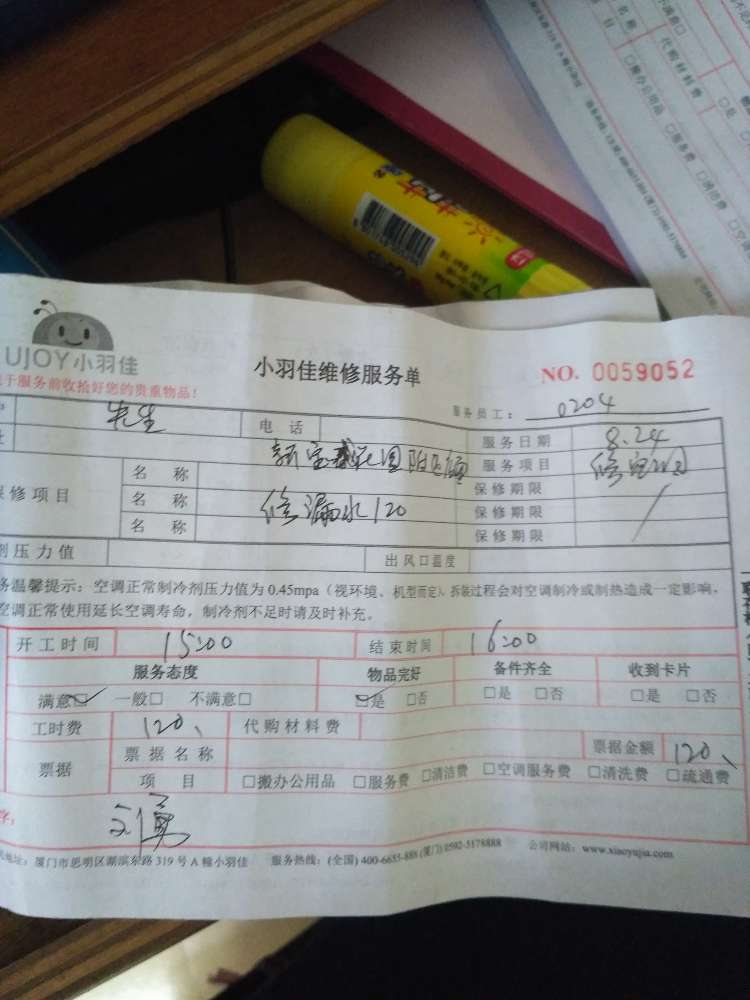 UJOY小羽佳
小羽佳维修服务单
NO. 0059052
于服务前收拾好您的贵重物品!
服务员工: 0204
先生
电话
服务日期 8.24
服务项目
修项目
名称
保修期限
名称 修漏水120
保修期限
名称
保修期限
剂压力值
出风口温度
务温馨提示:空调正常制冷剂压力值为0.45mpa(视环境、机型而定)。拆装过程会对空调制冷或制热造成一定影响,
空调正常使用延长空调寿命,制冷剂不足时请及时补充。
开工时间 15:00 结束时间 16:00
服务态度 物品完好 备件齐全 收到卡片
满意☑ 一般□ 不满意□ ☑是 □否 □是 □否 □是 □否
工时费 120、 代购材料费
票据 票据名称 票据金额 120、
项目 □搬办公用品 □服务费 □清洁费 □空调服务费 □清洗费 □疏通费
字:
地址:厦门市思明区湖滨东路319号A幢小羽佳 服务热线:(全国)400-6655-888(厦门)0592-5178888 公司网站:www.xiaoyujia.com